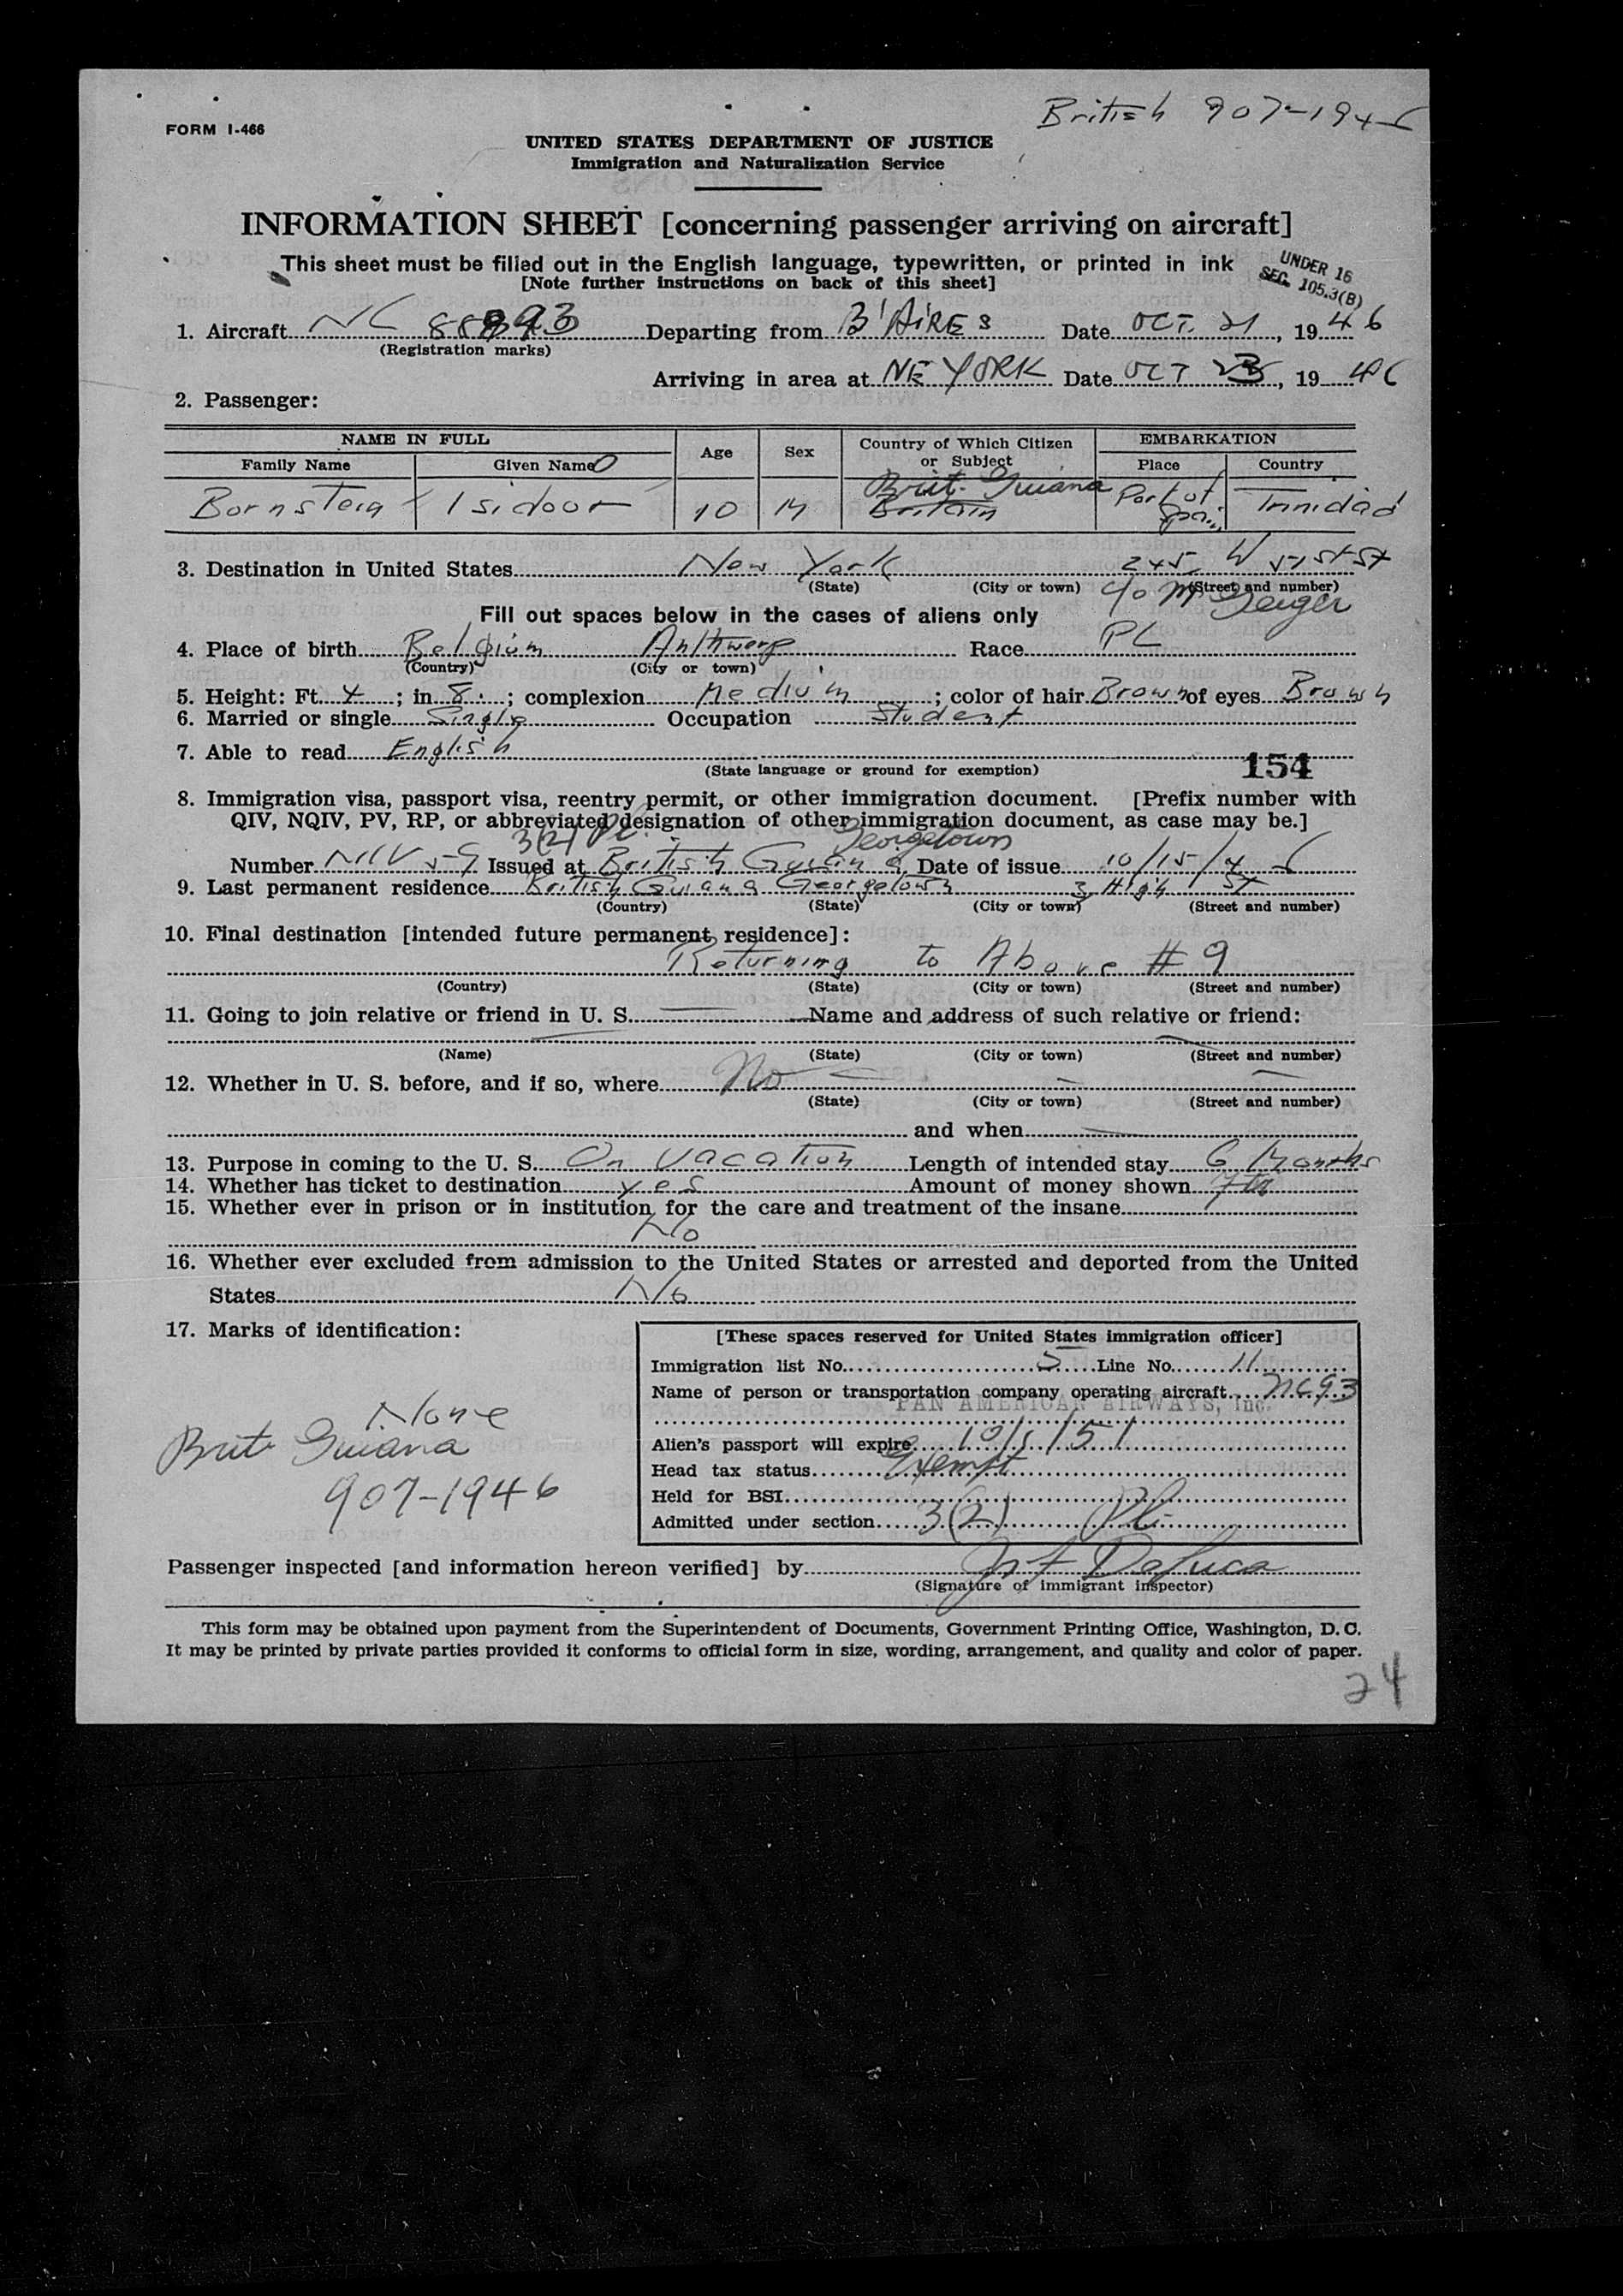 British 907-1946
FORM I-466
UNITED STATES DEPARTMENT OF JUSTICE
Immigration and Naturalization Service
INFORMATION SHEET [concerning passenger arriving on aircraft]
This sheet must be filled out in the English language, typewritten, or printed in ink
[Note further instructions on back of this sheet]
UNDER 16
SEC. 105.3(B)
1. Aircraft NC 88893 Departing from B'AIRES Date OCT. 21, 1946
(Registration marks)
Arriving in area at NE YORK Date OCT 23, 1946
2. Passenger:
NAME IN FULL Age Sex Country of Which Citizen or Subject EMBARKATION
Family Name Given Name Place Country
Brit. Guiana
Bornstein Isidoor 10 M Britain Port of Spain Trinidad
3. Destination in United States New York 245 W 51 St St
(State) (City or town) (Street and number)
c/o M Geiger
Fill out spaces below in the cases of aliens only
4. Place of birth Belgium Anthwerp Race PL
(Country) (City or town)
5. Height: Ft. 4; in 8.; complexion Medium; color of hair Brown of eyes Brown
6. Married or single Single Occupation Student
7. Able to read English
(State language or ground for exemption)
154
8. Immigration visa, passport visa, reentry permit, or other immigration document. [Prefix number with
QIV, NQIV, PV, RP, or abbreviated designation of other immigration document, as case may be.]
3(2) Pl. Georgetown
Number Issued at British Guiana Date of issue 10/15/46
9. Last permanent residence British Guiana Georgetown 3 High St
(Country) (State) (City or town) (Street and number)
10. Final destination [intended future permanent residence]:
Returning to Above # 9
(Country) (State) (City or town) (Street and number)
11. Going to join relative or friend in U. S. Name and address of such relative or friend:
(Name) (State) (City or town) (Street and number)
12. Whether in U. S. before, and if so, where No
(State) (City or town) (Street and number)
and when
13. Purpose in coming to the U. S. On vacation Length of intended stay 6 Months
14. Whether has ticket to destination yes Amount of money shown
15. Whether ever in prison or in institution for the care and treatment of the insane
No
16. Whether ever excluded from admission to the United States or arrested and deported from the United
States No
17. Marks of identification:
None
Brit Guiana
907-1946
[These spaces reserved for United States immigration officer]
Immigration list No. 5 Line No. 11
Name of person or transportation company operating aircraft NC93
PAN AMERICAN AIRWAYS, Inc.
Alien's passport will expire 10/1/51
Head tax status Exempt
Held for BSI
Admitted under section 3(2) Pl.
Passenger inspected [and information hereon verified] by DeLuca
(Signature of immigrant inspector)
This form may be obtained upon payment from the Superintendent of Documents, Government Printing Office, Washington, D. C.
It may be printed by private parties provided it conforms to official form in size, wording, arrangement, and quality and color of paper.
24